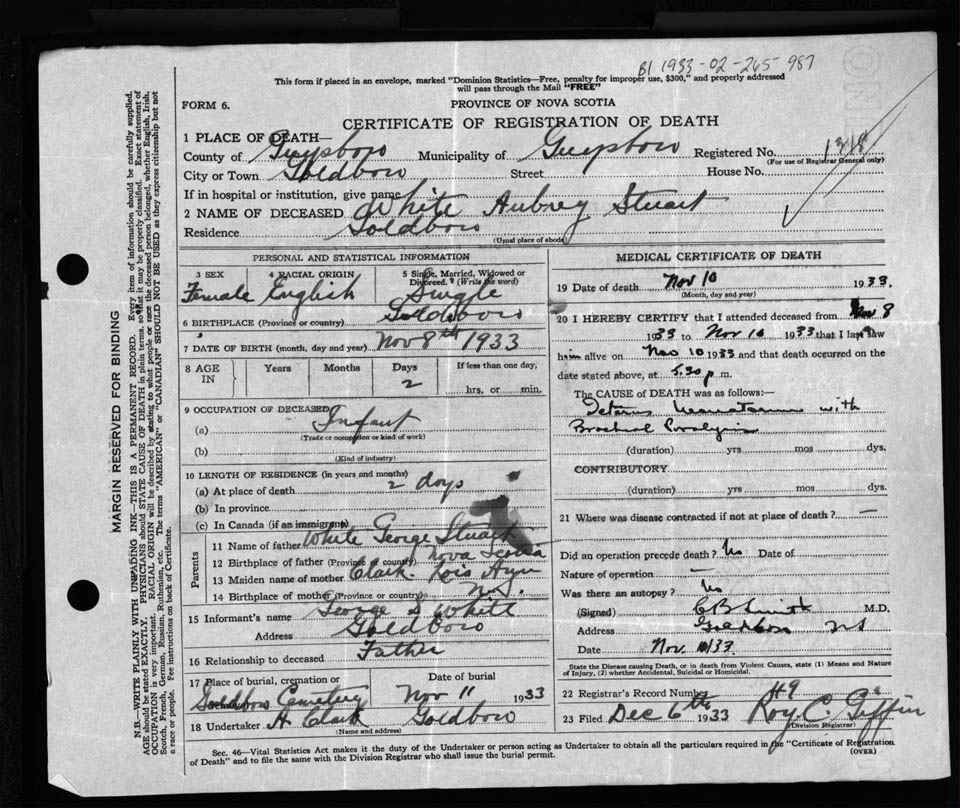 B1 1933-02-265 987
This form if placed in an envelope, marked "Dominion Statistics—Free, penalty for improper use, $300," and properly addressed
will pass through the Mail "FREE"
FORM 6.
PROVINCE OF NOVA SCOTIA
CERTIFICATE OF REGISTRATION OF DEATH
1 PLACE OF DEATH—
County of Guysboro Municipality of Guysboro Registered No. 1318
(For use of Registrar General only)
City or Town Goldboro Street House No.
If in hospital or institution, give name
2 NAME OF DECEASED White Aubrey Stuart
Residence Goldboro
(Usual place of abode)
PERSONAL AND STATISTICAL INFORMATION
3 SEX 4 RACIAL ORIGIN 5 Single, Married, Widowed or Divorced. (Write the word)
Female English Single
6 BIRTHPLACE (Province or country) Goldboro
7 DATE OF BIRTH (month, day and year) Nov 8th 1933
8 AGE IN Years Months Days If less than one day,
2 hrs. or min.
9 OCCUPATION OF DECEASED
(a) Infant
(Trade or occupation or kind of work)
(b)
(Kind of industry)
10 LENGTH OF RESIDENCE (in years and months)
(a) At place of death 2 days
(b) In province
(c) In Canada (if an immigrant)
Parents
11 Name of father White George Stuart
12 Birthplace of father (Province or country) Nova Scotia
13 Maiden name of mother Clark. Lois Ayn
14 Birthplace of mother (Province or country) N.S.
15 Informant's name George S White
Address Goldboro
16 Relationship to deceased Father
17 Place of burial, cremation or Date of burial
Goldboro Cemetery Nov 11 1933
18 Undertaker H Clark Goldboro
(Name and address)
MEDICAL CERTIFICATE OF DEATH
19 Date of death Nov 10 1933.
(Month, day and year)
20 I HEREBY CERTIFY that I attended deceased from Nov 8
1933 to Nov 10 1933 that I last saw
him alive on Nov 10 1933 and that death occurred on the
date stated above, at 5.30 p m.
The CAUSE OF DEATH was as follows:
Icterus Neonatorum with
Brachial Paralysis
(duration) yrs mos dys.
CONTRIBUTORY
(duration) yrs mos dys.
21 Where was disease contracted if not at place of death? —
Did an operation precede death? No Date of
Nature of operation —
Was there an autopsy? No
(Signed) C B Smith M.D.
Address Goldboro NS
Date Nov. 10/33.
State the Disease causing Death, or in death from Violent Causes, state (1) Means and Nature
of Injury, (2) whether Accidental, Suicidal or Homicidal.
22 Registrar's Record Number 49
23 Filed Dec 6th 1933 Roy C. Giffin
(Division Registrar)
Sec. 46—Vital Statistics Act makes it the duty of the Undertaker or person acting as Undertaker to obtain all the particulars required in the "Certificate of Registration
of Death" and to file the same with the Division Registrar who shall issue the burial permit.
(OVER)
MARGIN RESERVED FOR BINDING
N.B.—WRITE PLAINLY WITH UNFADING INK—THIS IS A PERMANENT RECORD. Every item of information should be carefully supplied.
AGE should be stated EXACTLY. PHYSICIANS should STATE CAUSE OF DEATH in plain terms, so that it may be properly classified. Exact statement of
OCCUPATION is very important. RACIAL ORIGIN will be described by stating to what people or race the deceased person belonged, whether English, Irish,
Scotch, French, German, Russian, Ruthenian, etc. The terms "AMERICAN" or "CANADIAN" SHOULD NOT BE USED as they express citizenship but not
a race or people. Fee instructions on back of Certificate.